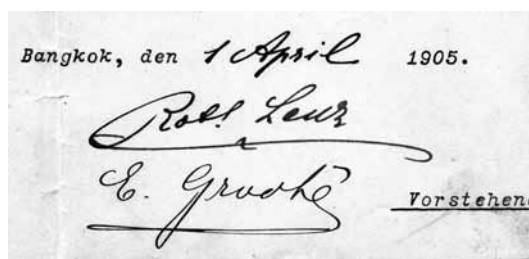 Bangkok, den 1 April 1905.
Robt. Lenz
E. Groote
Vorstehend